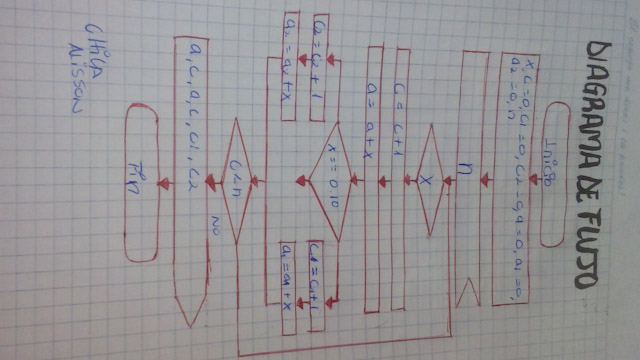 DIAGRAMA DE FLUJO
Inicio
x, c=0, c1=0, c2=0, a=0, a1=0,
a2=0, n
n
x
c = c+1
a = a+x
x == 0.10
c2 = c2 + 1
a2 = a2 + x
c1 = c1+1
a1 = a1+x
c<n
NO
a, c, a, c, c1, c2
Fin
CHICA
NISSON